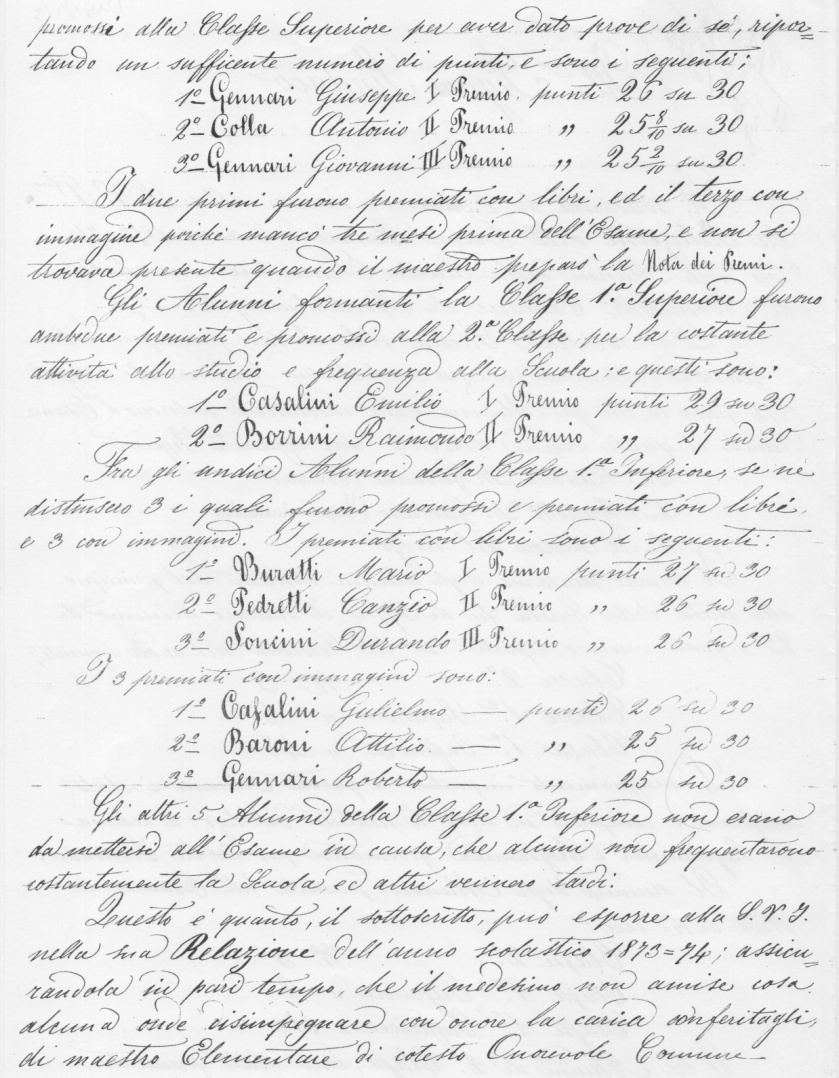 promossi alla Classe Superiore per aver dato prove di sé, ripor=
tando un sufficente numero di punti, e sono i seguenti;
1º Gennari Giuseppe I Premio. punti 26 su 30
2º Colla Antonio II Premio „ 25 8/10 su 30
3º Gennari Giovanni III Premio „ 25 2/10 su 30
I due primi furono premiati con libri, ed il terzo con
immagine poiché mancò tre mesi prima dell'Esame, e non si
trovava presente quando il maestro preparò la Nota dei Premi.
Gli Alunni formanti la Classe 1.ª Superiore furono
ambedue premiati e promossi alla 2.ª Classe per la costante
attività allo studio e frequenza alla Scuola; e questi sono:
1º Casalini Emilio I Premio punti 29 su 30
2º Borrini Raimondo II Premio „ 27 su 30
Fra gli undici Alunni della Classe 1.ª Inferiore, se ne
distinsero 3 i quali furono promossi e premiati con libri,
e 3 con immagini. I premiati con libri sono i seguenti:
1º Buratti Mario I Premio punti 27 su 30
2º Pedretti Canzio II Premio „ 26 su 30
3º Soncini Durando III Premio „ 26 su 30
I 3 premiati con immagini sono:
1º Casalini Gulielmo — punti 26 su 30
2º Baroni Attilio. — „ 25 su 30
3º Gennari Roberto — „ 25 su 30
Gli altri 5 Alunni della Classe 1.ª Inferiore non erano
da mettersi all'Esame in causa, che alcuni non frequentarono
costantemente la Scuola, ed altri vennero tardi.
Questo è quanto, il sottoscritto, può esporre alla S. V. I.
nella sua Relazione dell'anno scolastico 1873=74; assicu=
randola in pari tempo, che il medesimo non amise cosa
alcuna onde disimpegnare con onore la carica conferitagli,
di maestro Elementare di cotesto Onorevole Comune—